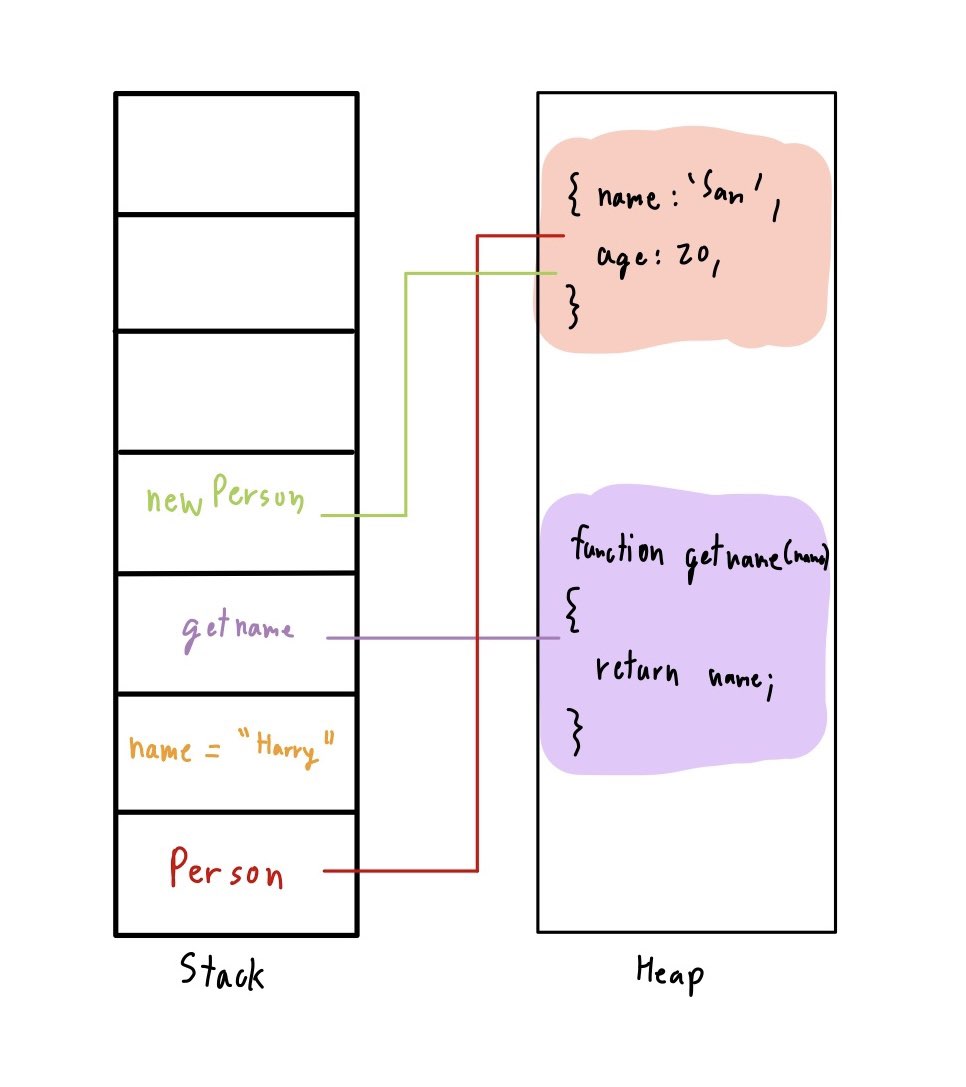 newPerson
getname
name = "Harry"
Person
Stack
{ name: 'San',
age: 20,
}
function getname(name)
{
return name;
}
Heap